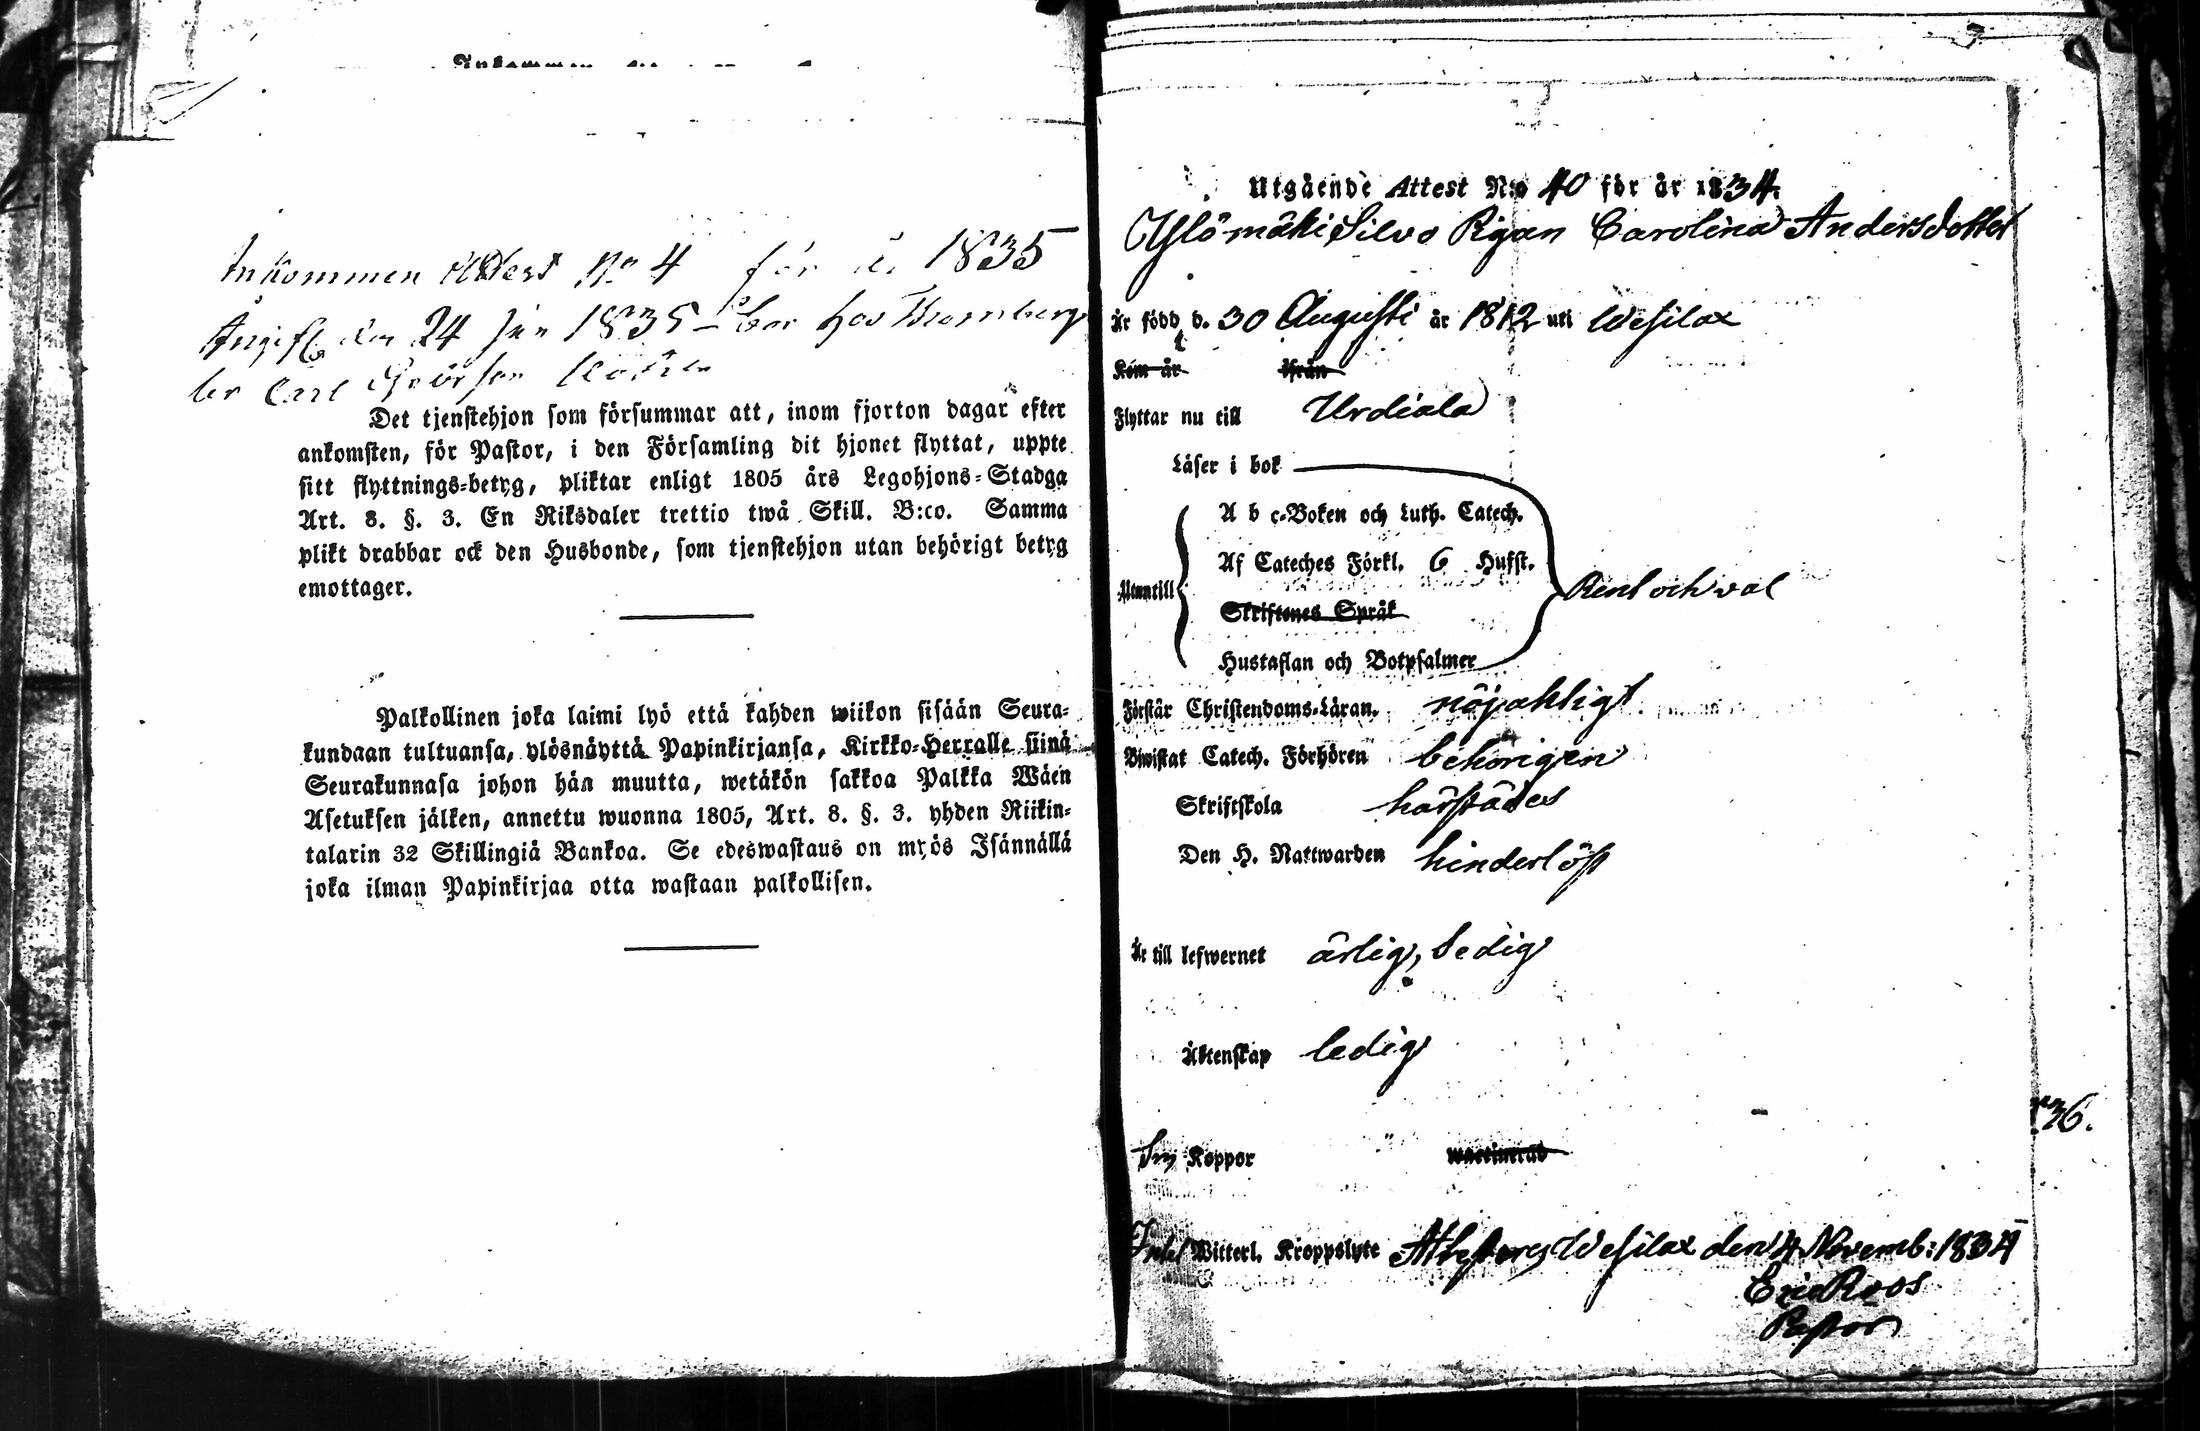 Inkommen Attest No 4 för år 1835
Angifv. den 24 Jan 1835 – bor hos
ler Carl
Det tjenstehjon som försummar att, inom fjorton dagar efter
ankomsten, för Pastor, i den Församling dit hjonet flyttat, uppte
sitt flyttnings-betyg, pliktar enligt 1805 års Legohjons-Stadga
Art. 8. §. 3. En Riksdaler trettio twå Skill. B:co. Samma
plikt drabbar ock den Husbonde, som tjenstehjon utan behörigt betyg
emottager.
Palkollinen joka laimi lyö että kahden wiikon sisään Seura-
kundaan tultuansa, ylösnäyttä Papinkirjansa, Kirkko-Herralle siinä
Seurakunnasa johon hän muutta, wetäkön sakkoa Palkka Wäen
Asetuksen jälken, annettu wuonna 1805, Art. 8. §. 3. yhden Riikin-
talarin 32 Skillingiä Bankoa. Se edeswastaus on myös Isännällä
joka ilman Papinkirjaa otta wastaan palkollisen.
Utgående Attest N:o 40 för år 1834.
Ylömäki Silvo Pigan Carolina Andersdotter
Är född d. 30 Augusti år 1812 uti Wesilax
Kom år ifrån
Flyttar nu till Urdiala
Läser i bok
A b c-Boken och Luth. Catech.
Af Cateches Förkl. 6 Hufst.
Utantill
Rent och val
Skriftenes Språk
Hustaflan och Botpsalmer
Förstår Christendoms-Läran. nöjaktligt
Biwistat Catech. Förhören behörigen
Skriftskola härstädes
Den H. Nattwarden hinderlöst
Är till lefwernet ärlig, sedig
Äktenskap ledig
Koppor waccinerad
Intet Witterl. Kroppslyte Attesterar Wesilax den 4 Novemb: 1834
Eric Roos
Pastor
36.